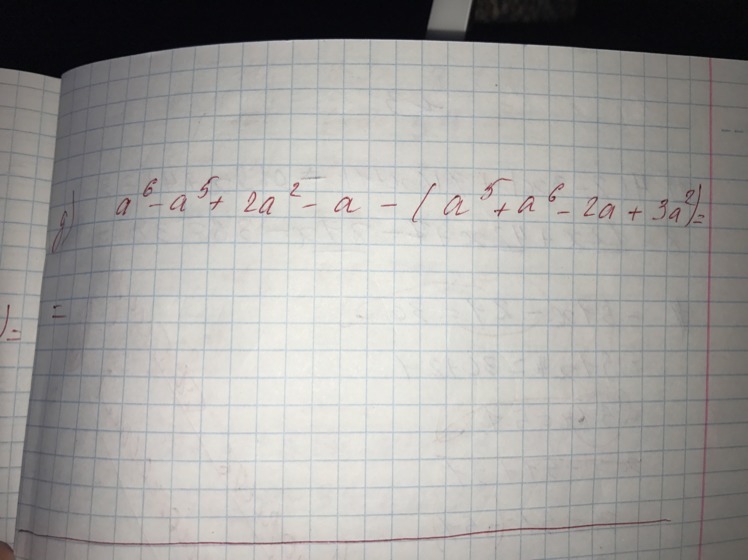 д) a⁶ - a⁵ + 2a² - a - (a⁵ + a⁶ - 2a + 3a²) =
) = =